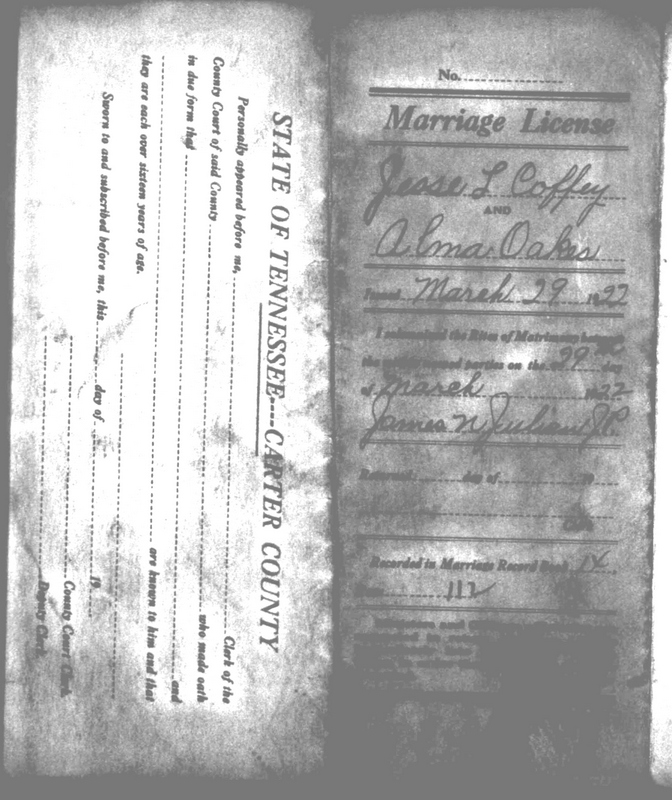 STATE OF TENNESSEE----CARTER COUNTY
Personally appeared before me, Clerk of the
County Court of said County who made oath
in due form that and
they are each over sixteen years of age. are known to him and that
Sworn to and subscribed before me, this day of 19
County Court Clerk.
Deputy Clerk.
No.
Marriage License
Jesse L Coffey
AND
Alma Oakes
Issued March 29 1922
I solemnized the Rites of Matrimony between
the parties on the 29 day
of March 1922
James N Julian J.P.
day of 19
Clerk
Recorded in Marriage Record Book 14
Page 112